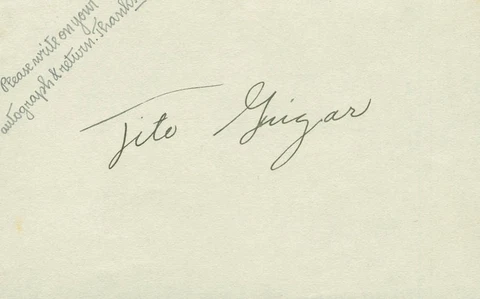 Please write on your
autograph & return. Thanks
Tito Guizar